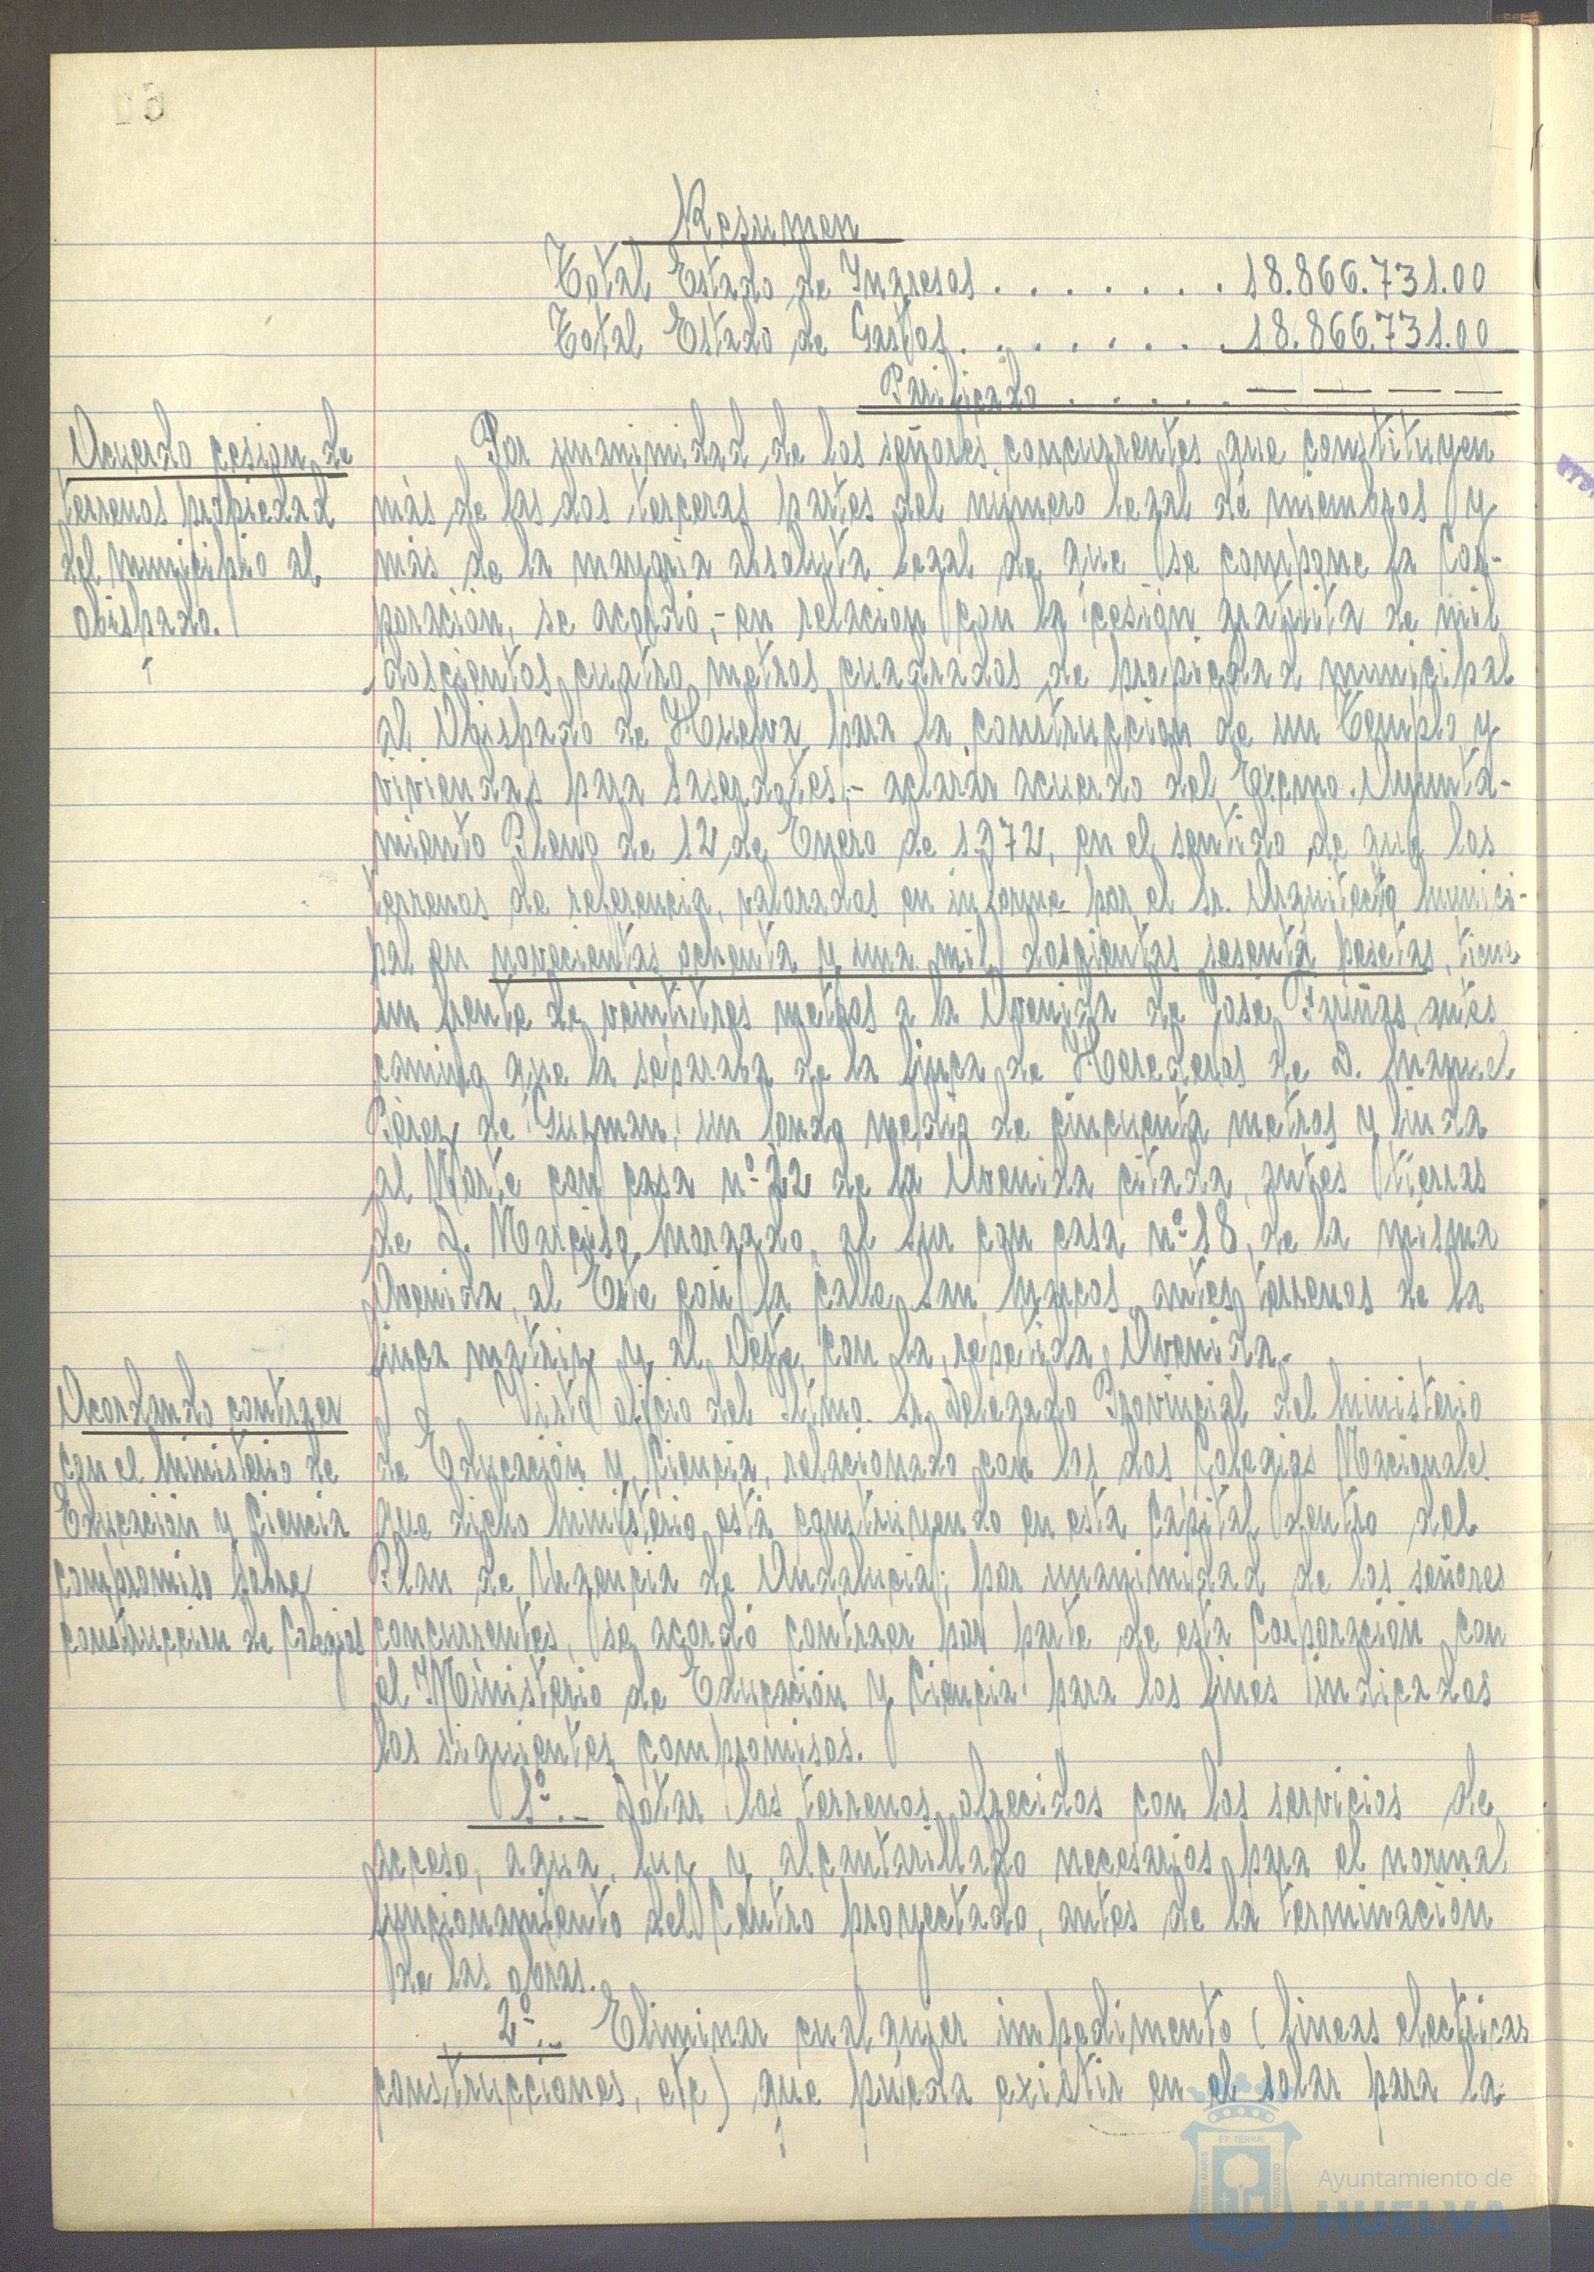 Resumen
Total Estado de Ingresos . . . . . . . 18.866.731.00
Total Estado de Gastos . . . . . . . 18.866.731.00
Parificado . . . . . . — — — —
Acuerdo cesion de
terrenos propiedad
del municipio al
obispado.
Por unanimidad de los señores concurrentes que constituyen
más de las dos terceras partes del número legal de miembros y
más de la mayoria absoluta legal de que se compone la Cor-
poración, se acordó,- en relación con la cesión gratuita de mil
doscientos cuatro metros cuadrados de propiedad municipal
al Obispado de Huelva para la construccion de un Templo y
viviendas para Sacerdotes,- aclarar acuerdo del Excmo. Ayunta-
miento Pleno de 12 de Enero de 1.972, en el sentido de que los
terrenos de referencia, valorados en informe por el Sr. Arquitecto Munici-
pal en novecientas ochenta y una mil doscientas sesenta pesetas, tiene
un frente de veintitres metros a la Avenida de José Fariñas, antes
camino que la separaba de la finca de Herederos de D. Manuel
Pérez de Guzman, un fondo medio de cincuenta metros y linda
al Norte con casa nº 22 de la Avenida citada, antes tierras
de D. Narciso Morgado, al Sur con casa nº 18, de la misma
Avenida, al Este con la calle San Marcos antes terrenos de la
finca matriz y al Oeste con la repetida Avenida.
Acordando contraer
con el Ministerio de
Educación y Ciencia
compromiso sobre
construccion de Colegios
Visto oficio del Iltmo. Sr. Delegado Provincial del Ministerio
de Educación y Ciencia, relacionado con los dos Colegios Nacionales
que dicho Ministerio está construyendo en esta Capital dentro del
Plan de Urgencia de Andalucia; por unanimidad de los señores
concurrentes, se acordó contraer por parte de esta Corporación con
el Ministerio de Educación y Ciencia para los fines indicados
los siguientes compromisos.
1º.- Dotar los terrenos ofrecidos con los servicios de
acceso, agua, luz y alcantarillado necesarios para el normal
funcionamiento del Centro proyectado, antes de la terminación
de las obras.
2º.- Eliminar cualquier impedimento (lineas electricas
construcciones, etc) que pueda existir en el solar para la
Ayuntamiento de
HUELVA